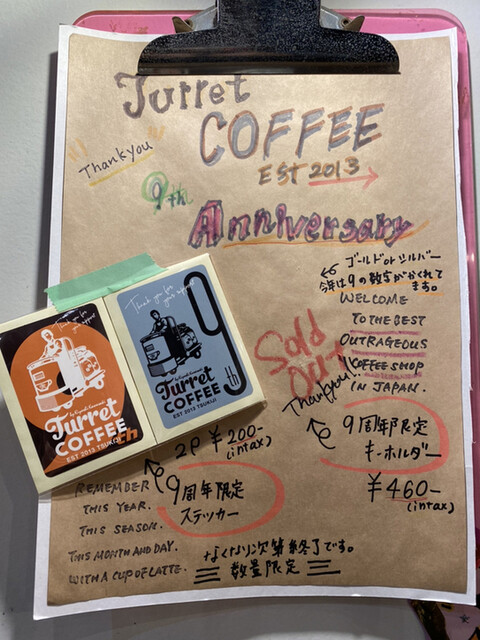 Turret
COFFEE
"Thank you"
EST 2013
9th
Anniversary
ゴールドorシルバー
今年は9の数字がかくれて
ます。
WELCOME
TO THE BEST
OUTRAGEOUS
COFFEE SHOP
IN JAPAN.
Sold
Out
Thankyou!!
9周年限定
キーホルダー
¥460-
(intax)
Thank you for
your support
Turret
COFFEE
EST 2013 TSUKIJI
9th
Thank you for
your support
9th
Turret
COFFEE
EST 2013 TSUKIJI
2P ¥200-
(intax)
9周年限定
ステッカー
REMEMBER
THIS YEAR.
THIS SEASON.
THIS MONTH AND DAY.
WITH A CUP OF LATTE.
なくなり次第終了です。
数量限定